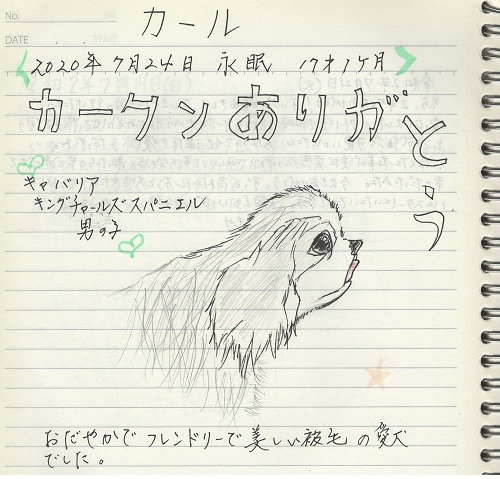 No.
DATE . .
カール
2020年7月24日 永眠 17才1ヶ月
カータンありがとう
キャバリア
キングチャールズスパニエル
男の子
おだやかでフレンドリーで美しい被毛の愛犬
でした。